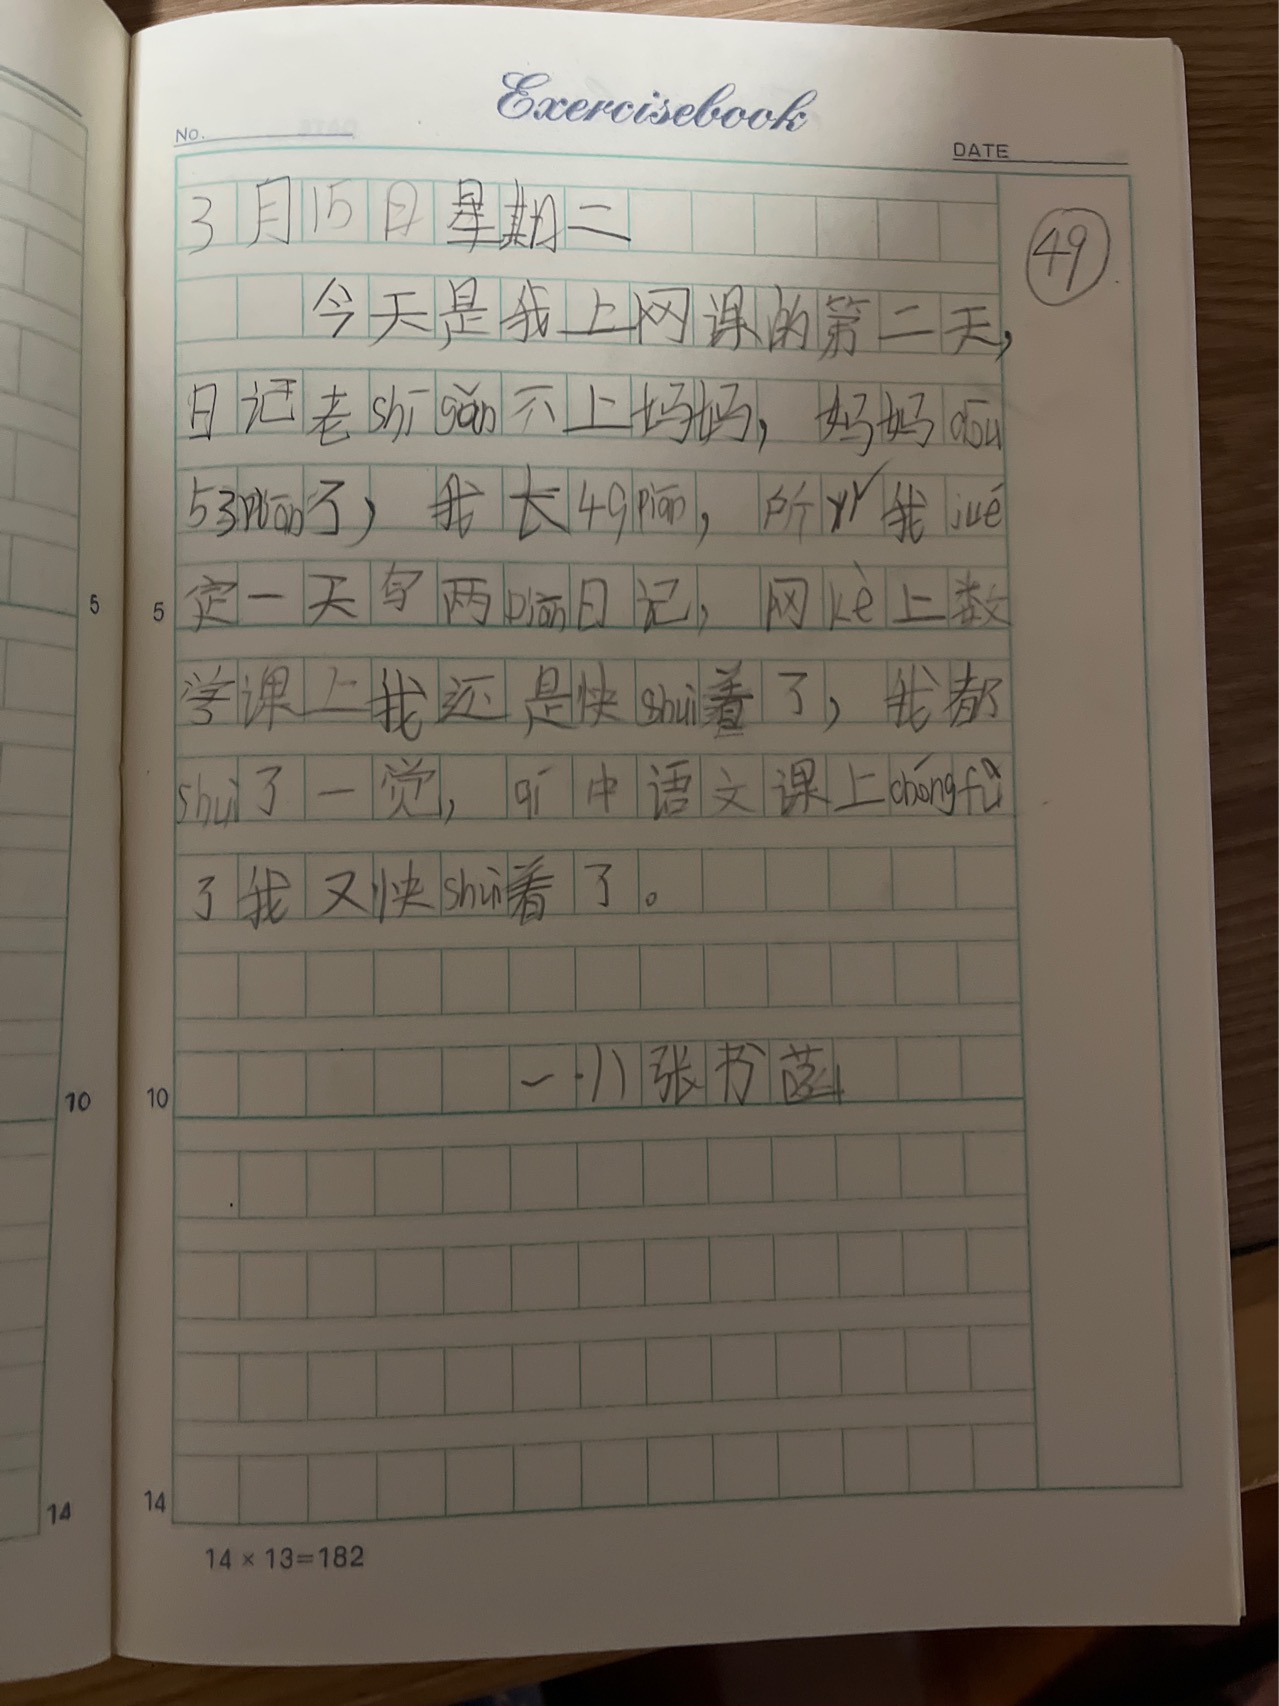 Exercisebook
No.
DATE
3月15日星期二
49
今天是我上网课的第二天,
日记老shī gǎn不上妈妈, 妈妈dōu
53piān了, 我长49piān, 所以我jué
定一天写两piān日记, 网kè上数
学课上我还是快shuì着了, 我都
shuì了一觉, qí中语文课上chóngfù
了我又快shuì着了。
一·八张书
5
5
10
10
14
14
14 × 13=182